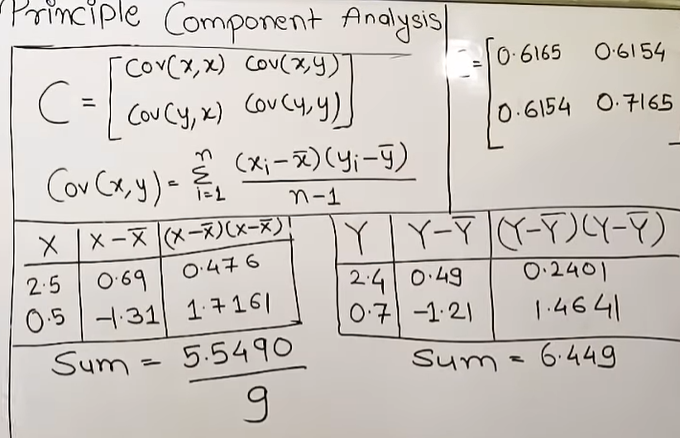 Principle Component Analysis
C = [Cov(x,x) Cov(x,y)
Cov(y,x) Cov(y,y)]
= [0.6165 0.6154
0.6154 0.7165
Cov(x,y) = n Σ i=1 (xi-x̄)(yi-ȳ) / n-1
X | X-X̄ | (X-X̄)(X-X̄)
2.5 0.69 0.476
0.5 -1.31 1.7161
Sum = 5.5490
9
Y | Y-Ȳ | (Y-Ȳ)(Y-Ȳ)
2.4 0.49 0.2401
0.7 -1.21 1.4641
Sum = 6.449